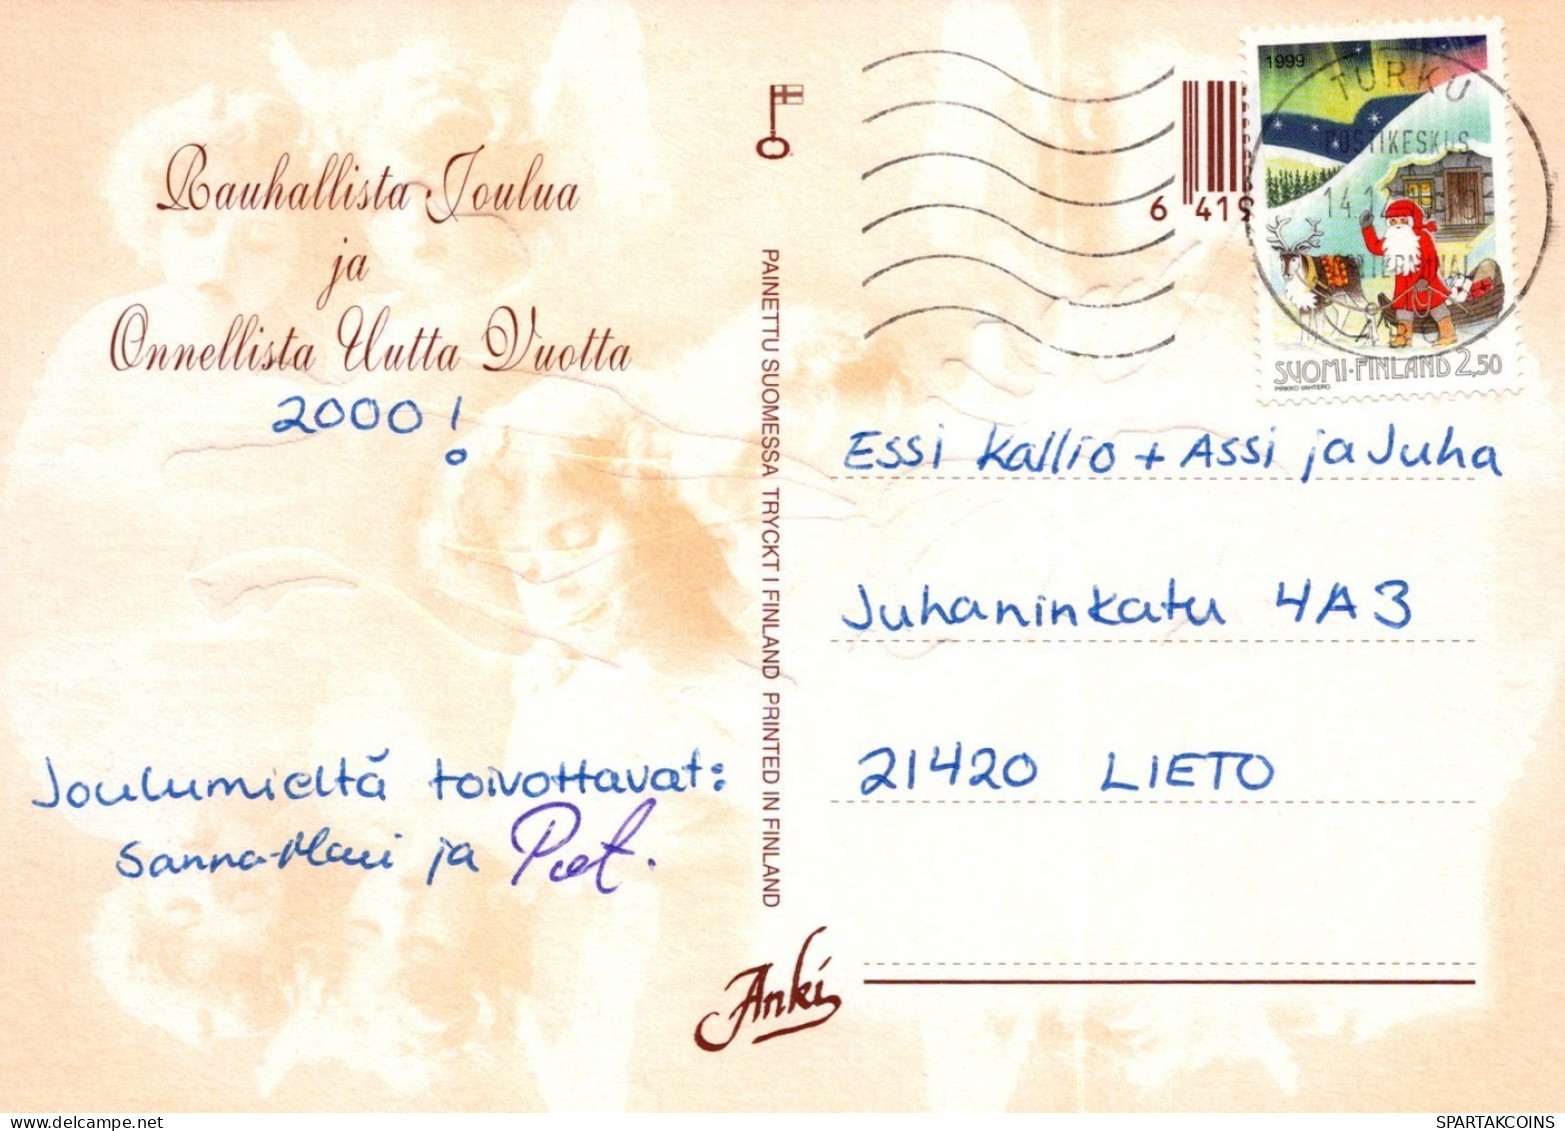 Rauhallista Joulua
ja
Onnellista Uutta Vuotta
2000!
Joulumieltä toivottavat:
Sanna-Mari ja
PAINETTU SUOMESSA TRYCKT I FINLAND PRINTED IN FINLAND
Anki
6 419
1999
SUOMI·FINLAND 2,50
PIRKKO VAHTERO
TURKU
POSTIKESKUS
14.12
ÅBO
Essi Kallio + Assi ja Juha
Juhaninkatu 4A3
21420 LIETO
SPARTAKCOINS